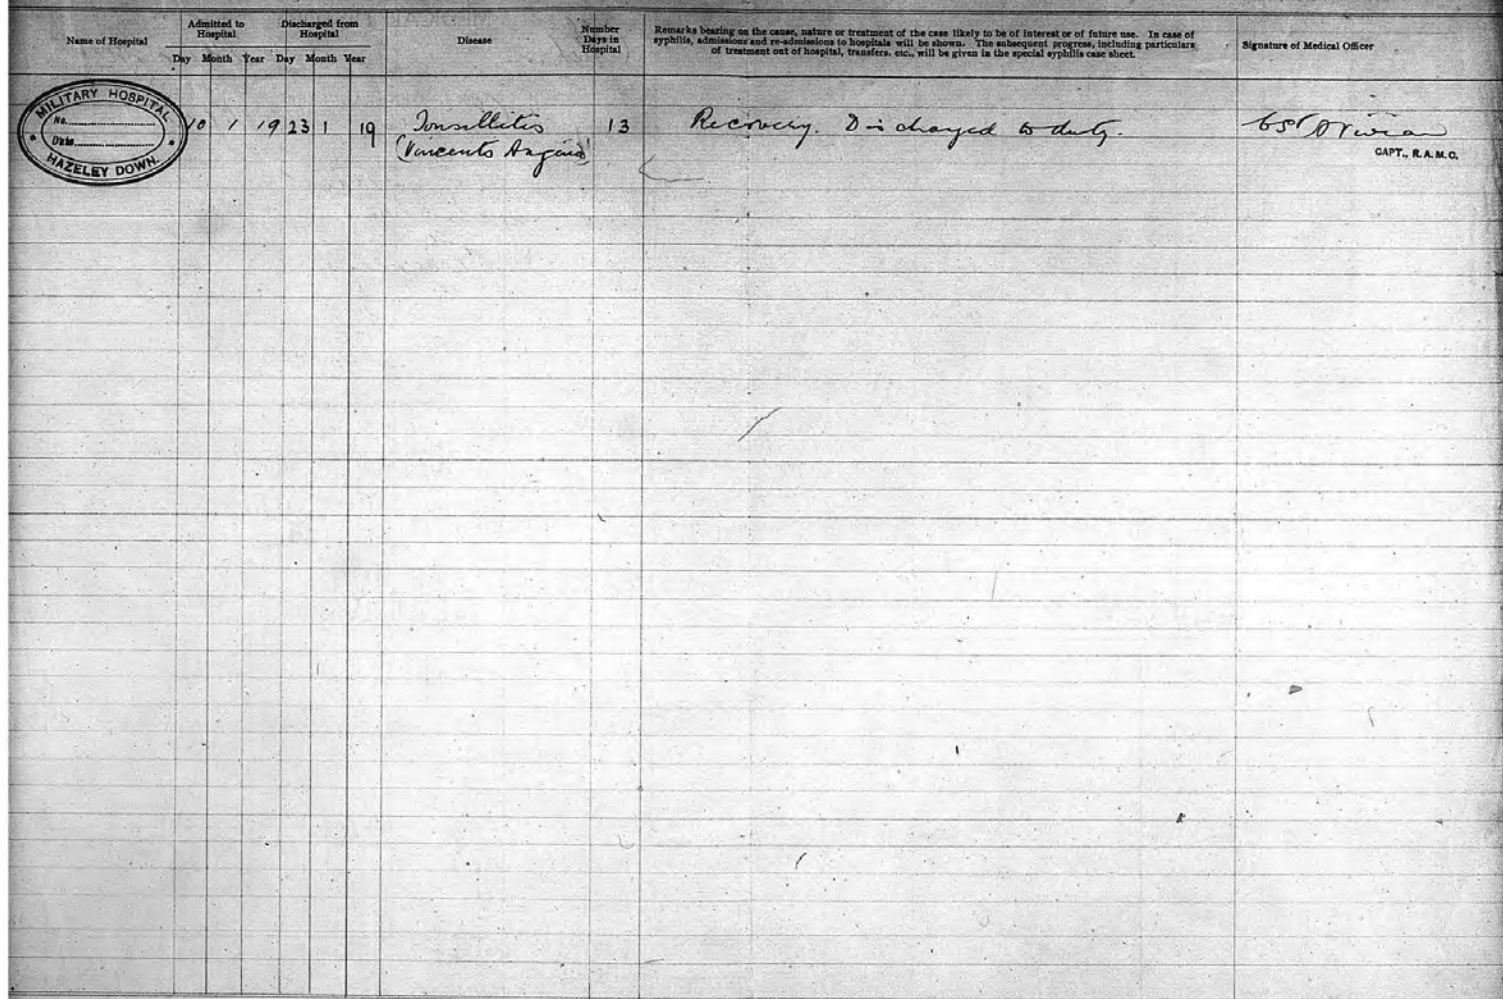 Name of Hospital
Admitted to
Hospital
Day Month Year
Discharged from
Hospital
Day Month Year
Disease
Number
Days in
Hospital
Remarks bearing on the cause, nature or treatment of the case likely to be of interest or of future use. In case of
syphilis, admissions and re-admissions to hospitals will be shown. The subsequent progress, including particulars
of treatment out of hospital, transfers, etc., will be given in the special syphilis case sheet.
Signature of Medical Officer
MILITARY HOSPITAL
No.
Date
HAZELEY DOWN.
10 1 19 23 1 19 Tonsillitis 13 Recovery. Discharged to duty.
(Vincents Angina)
CAPT., R.A.M.C.